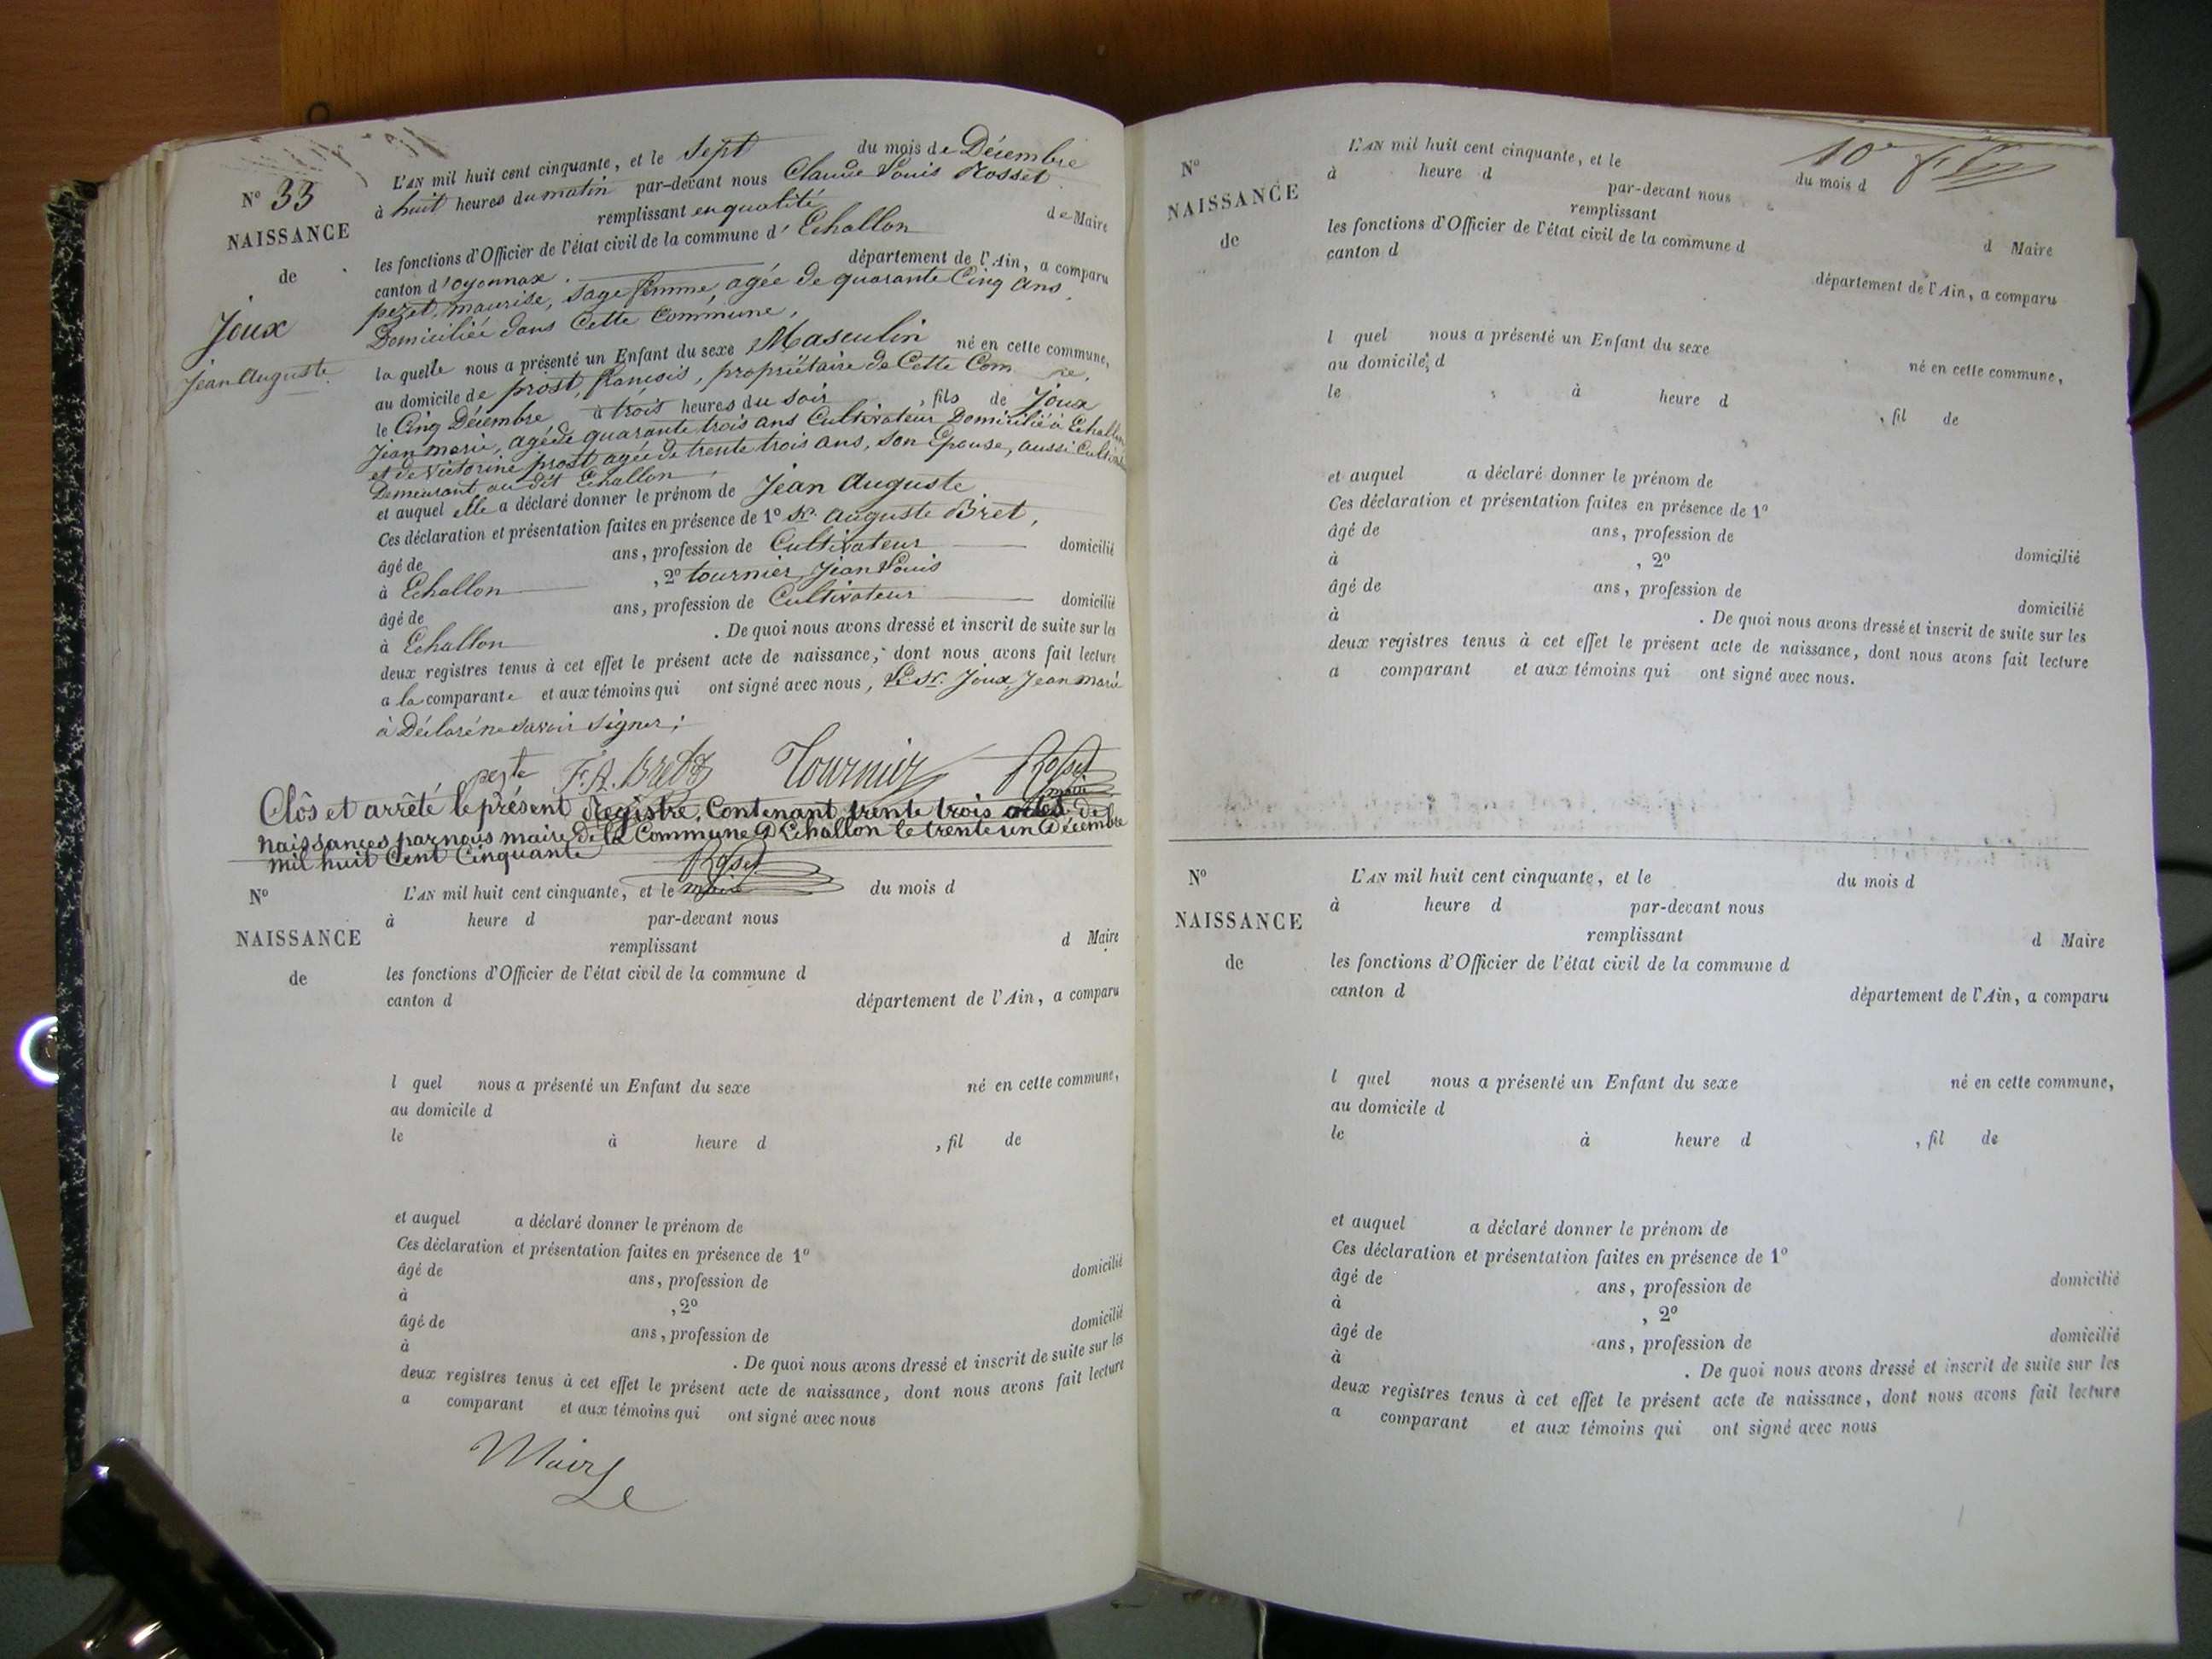 N° 33
NAISSANCE
de
Joux
Jean Auguste
L'AN mil huit cent cinquante, et le sept du mois de Décembre
à huit heures du matin par-devant nous Claude Louis Rosset
remplissant en qualité de Maire
les fonctions d'Officier de l'état civil de la commune d'Echallon
canton d'oyonnax. département de l'Ain, a comparu
peset, maurise, sage femme, agée de quarante Cinq ans,
Domiciliée dans Cette Commune,
la quelle nous a présenté un Enfant du sexe Masculin né en cette commune,
au domicile de prost, françois, propriétaire de Cette
le Cinq Décembre à trois heures du soir, fils de Joux
Jean marie, agé de quarante trois ans Cultivateur Domicilié à Echallon
et de Victorine prost agée de trente trois ans, son Epouse, aussi
Demeurant au dit Echallon
et auquel elle a déclaré donner le prénom de Jean Auguste
Ces déclaration et présentation faites en présence de 1° Sr. Auguste Bret,
âgé de ans, profession de Cultivateur domicilié
à Echallon , 2° tournier, Jean Louis
âgé de ans, profession de Cultivateur domicilié
à Echallon . De quoi nous avons dressé et inscrit de suite sur les
deux registres tenus à cet effet le présent acte de naissance, dont nous avons fait lecture
a la comparante et aux témoins qui ont signé avec nous, Le Sr. Joux, Jean marie
à Déclaré ne savoir signer;
F.A. Bret Tournier Rosset
maire
Clôs et arrêté le présent Registre, Contenant trente trois actes de
naissances par nous maire de la Commune d'Echallon le trente un Décembre
mil huit Cent Cinquante
Rosset
maire
N°
NAISSANCE
de
L'AN mil huit cent cinquante, et le du mois d
à heure d par-devant nous
remplissant d Maire
les fonctions d'Officier de l'état civil de la commune d
canton d département de l'Ain, a comparu
l quel nous a présenté un Enfant du sexe né en cette commune,
au domicile d
le à heure d , fil de
et auquel a déclaré donner le prénom de
Ces déclaration et présentation faites en présence de 1°
âgé de ans, profession de domicilié
à , 2°
âgé de ans, profession de domicilié
à . De quoi nous avons dressé et inscrit de suite sur les
deux registres tenus à cet effet le présent acte de naissance, dont nous avons fait lecture
a comparant et aux témoins qui ont signé avec nous
Maire
Le
10e
N°
NAISSANCE
de
L'AN mil huit cent cinquante, et le du mois d
à heure d par-devant nous
remplissant d Maire
les fonctions d'Officier de l'état civil de la commune d
canton d département de l'Ain, a comparu
l quel nous a présenté un Enfant du sexe né en cette commune,
au domicile d
le à heure d , fil de
et auquel a déclaré donner le prénom de
Ces déclaration et présentation faites en présence de 1°
âgé de ans, profession de domicilié
à , 2°
âgé de ans, profession de domicilié
à . De quoi nous avons dressé et inscrit de suite sur les
deux registres tenus à cet effet le présent acte de naissance, dont nous avons fait lecture
a comparant et aux témoins qui ont signé avec nous.
N°
NAISSANCE
de
L'AN mil huit cent cinquante, et le du mois d
à heure d par-devant nous
remplissant d Maire
les fonctions d'Officier de l'état civil de la commune d
canton d département de l'Ain, a comparu
l quel nous a présenté un Enfant du sexe né en cette commune,
au domicile d
le à heure d , fil de
et auquel a déclaré donner le prénom de
Ces déclaration et présentation faites en présence de 1°
âgé de ans, profession de domicilié
à , 2°
âgé de ans, profession de domicilié
à . De quoi nous avons dressé et inscrit de suite sur les
deux registres tenus à cet effet le présent acte de naissance, dont nous avons fait lecture
a comparant et aux témoins qui ont signé avec nous